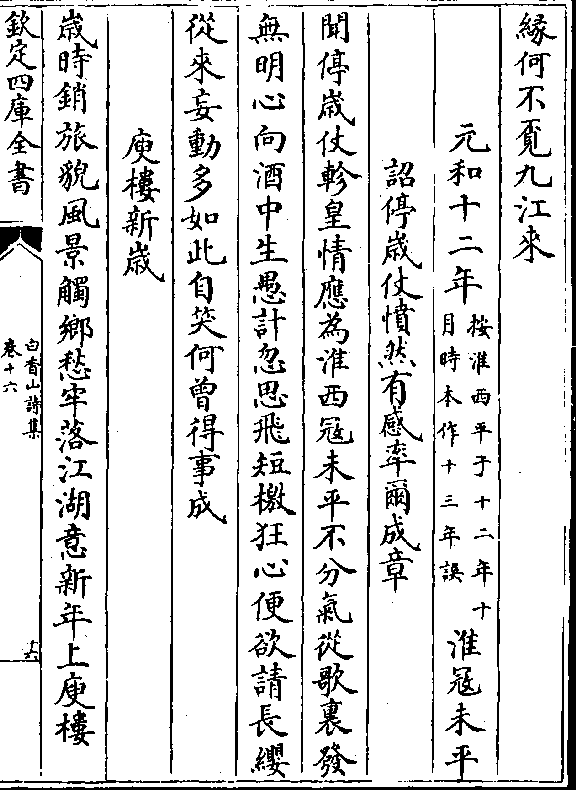 緣何不覓九江來
元和十二年按淮西平于十二年十月時本作十三年誤淮冦未平
詔停歲仗憤然有感率爾成章
聞停歲仗軫皇情應為淮西冦未平不分氣從歌裏發
無明心向酒中生愚計忽思飛短檄狂心便欲請長纓
從來妄動多如此自笑何曾得事成
庾樓新歲
歲時銷旅貌風景觸鄉愁牢落江湖意新年上庾樓
欽定四庫全書
白香山詩集
卷十六
十六